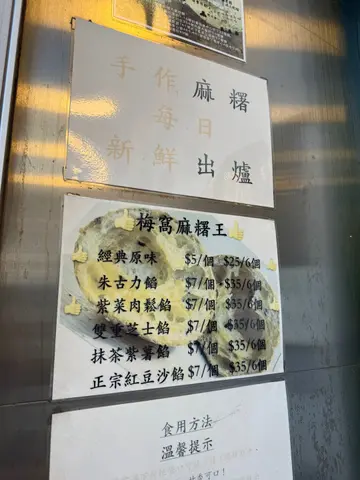 手作麻糬
每日
新鮮出爐
梅窩麻糬王
經典原味 $5/個 $25/6個
朱古力餡 $7/個 $35/6個
紫菜肉鬆餡 $7/個 $35/6個
雙重芝士餡 $7/個 $35/6個
抹茶紫薯餡 $7/個 $35/6個
正宗紅豆沙餡 $7/個 $35/6個
食用方法
溫馨提示